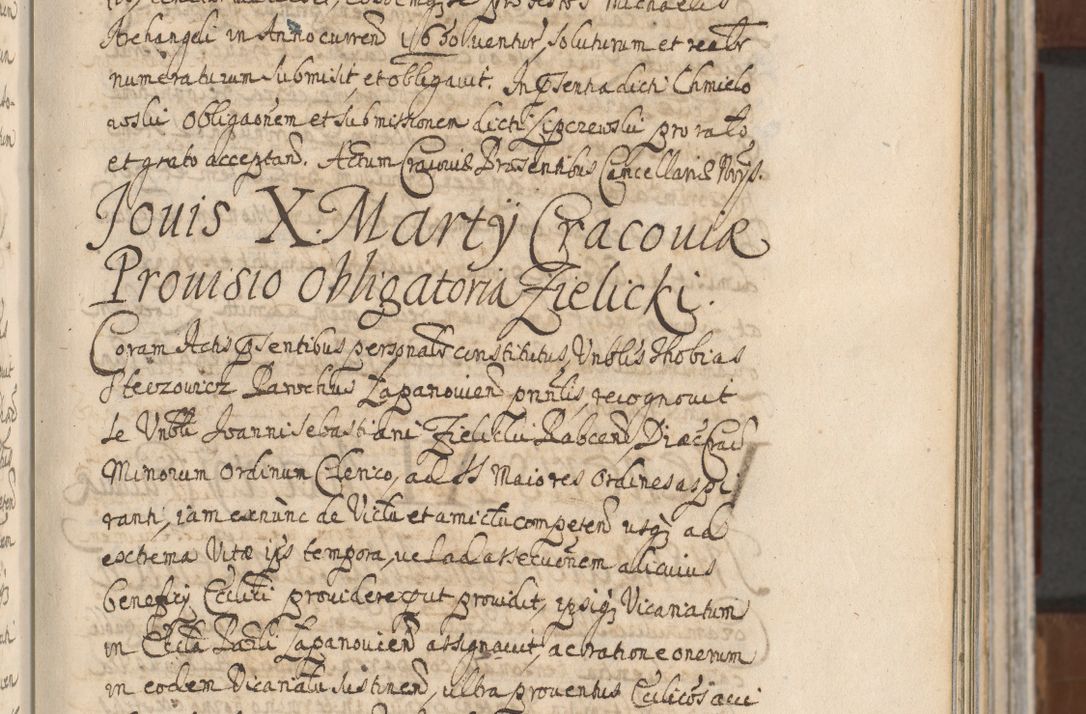 Archangeli in Anno currend 1660 soluentur, soluturum et realr
numeraturum submisit, et obligauit. In psentia dicti Chmielo
wski obligaonem et submissionem dicti Lipczewski pro rato
et grato acceptand. Actum Cracouiæ Præsentibus Cancellariæ Nrys.
Jouis X. Martÿ Cracouiæ
Prouisio obligatoria Zielicki.
Coram Actis psentibus personalr constitutus Vnblis Thobias
Steczowicz Parochus Łapanouien pnnlis, recognouit
se Vnbli Joanni Sebastiani Zielicki Rabcen, Diæc Crac
Minorum Ordinum Clerico, ad SS Maiores Ordines aspi
ranti, iam exnunc de Victu et amictu competen usq ad
extrema Vitæ ips tempora, uel ad assecuonem alicuius
beneficij Ecclitici prouidere, put prouidit, ipsiq Vicariatum
in Eccla Parli Łapanouien assignauit, ac ratione onerum
in eodem Vicariatu sustinen, ultra prouentus Ecclicos